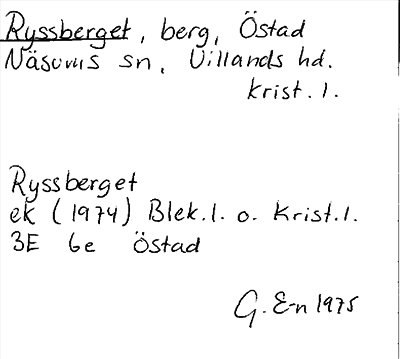 Ryssberget, berg, Östad
Näsums sn, Villands hd.
Krist. l.
Ryssberget
ek (1974) Blek. l. o. Krist. l.
3E 6e Östad
G. E-n 1975